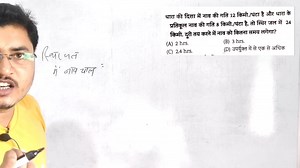 धारा की दिशा में नाव की गति 12 किमी./घंटा है और धारा के
प्रतिकूल नाव की गति 8 किमी./घंटा है, तो स्थिर जल में 24
किमी. दूरी तय करने में नाव को कितना समय लगेगा?
(A) 2 hrs. (B) 3 hrs.
(C) 2.4 hrs. (D) उपर्युक्त में से एक से अधिक
स्थिर जल
में नाव चाल =